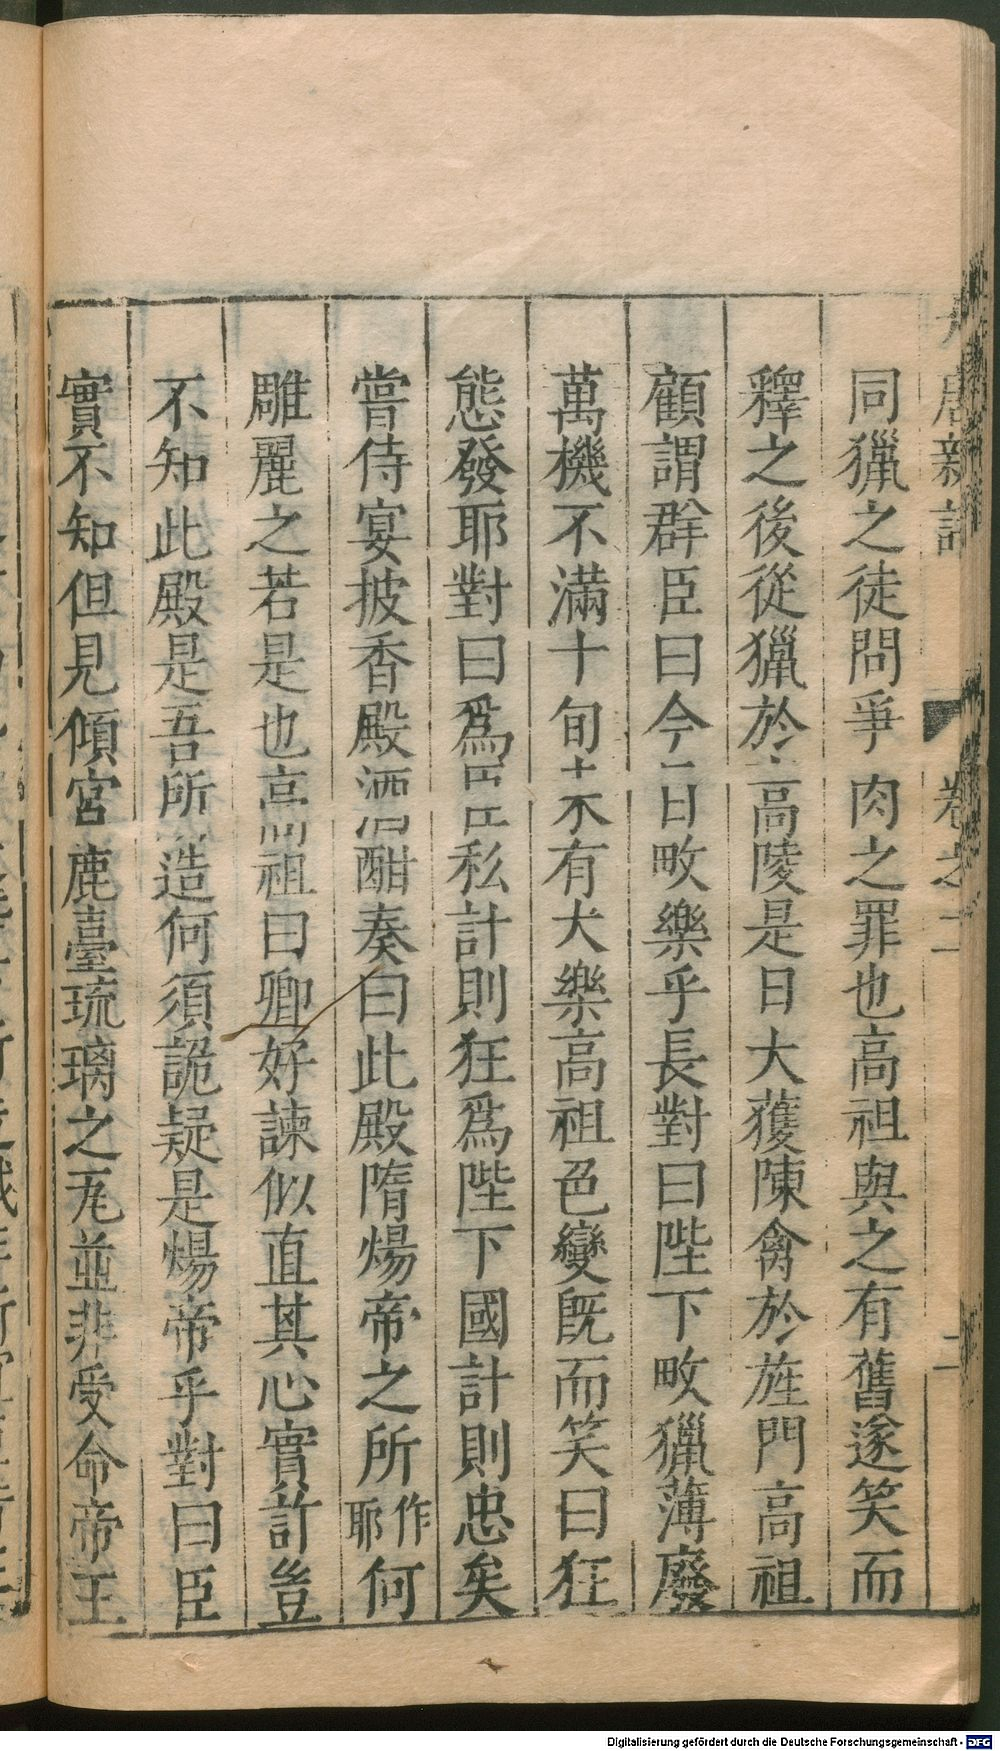 唐新語　卷之二　二
同獵之徒問爭肉之罪也高祖與之有舊遂笑而
釋之後從獵於高陵是日大獲陳禽於旌門高祖
顧謂群臣曰今日畋樂乎長對曰陛下畋獵薄廢
萬機不滿十旬未有大樂高祖色變旣而笑曰狂
態發耶對曰爲臣私計則狂爲陛下國計則忠矣
嘗侍宴披香殿酒酣奏曰此殿隋煬帝之所作耶何
雕麗之若是也高祖曰卿好諫似直其心實詐豈
不知此殿是吾所造何須詭疑是煬帝乎對曰臣
實不知但見傾宮鹿臺琉璃之瓦並非受命帝王
Digitalisierung gefördert durch die Deutsche Forschungsgemeinschaft - DFG